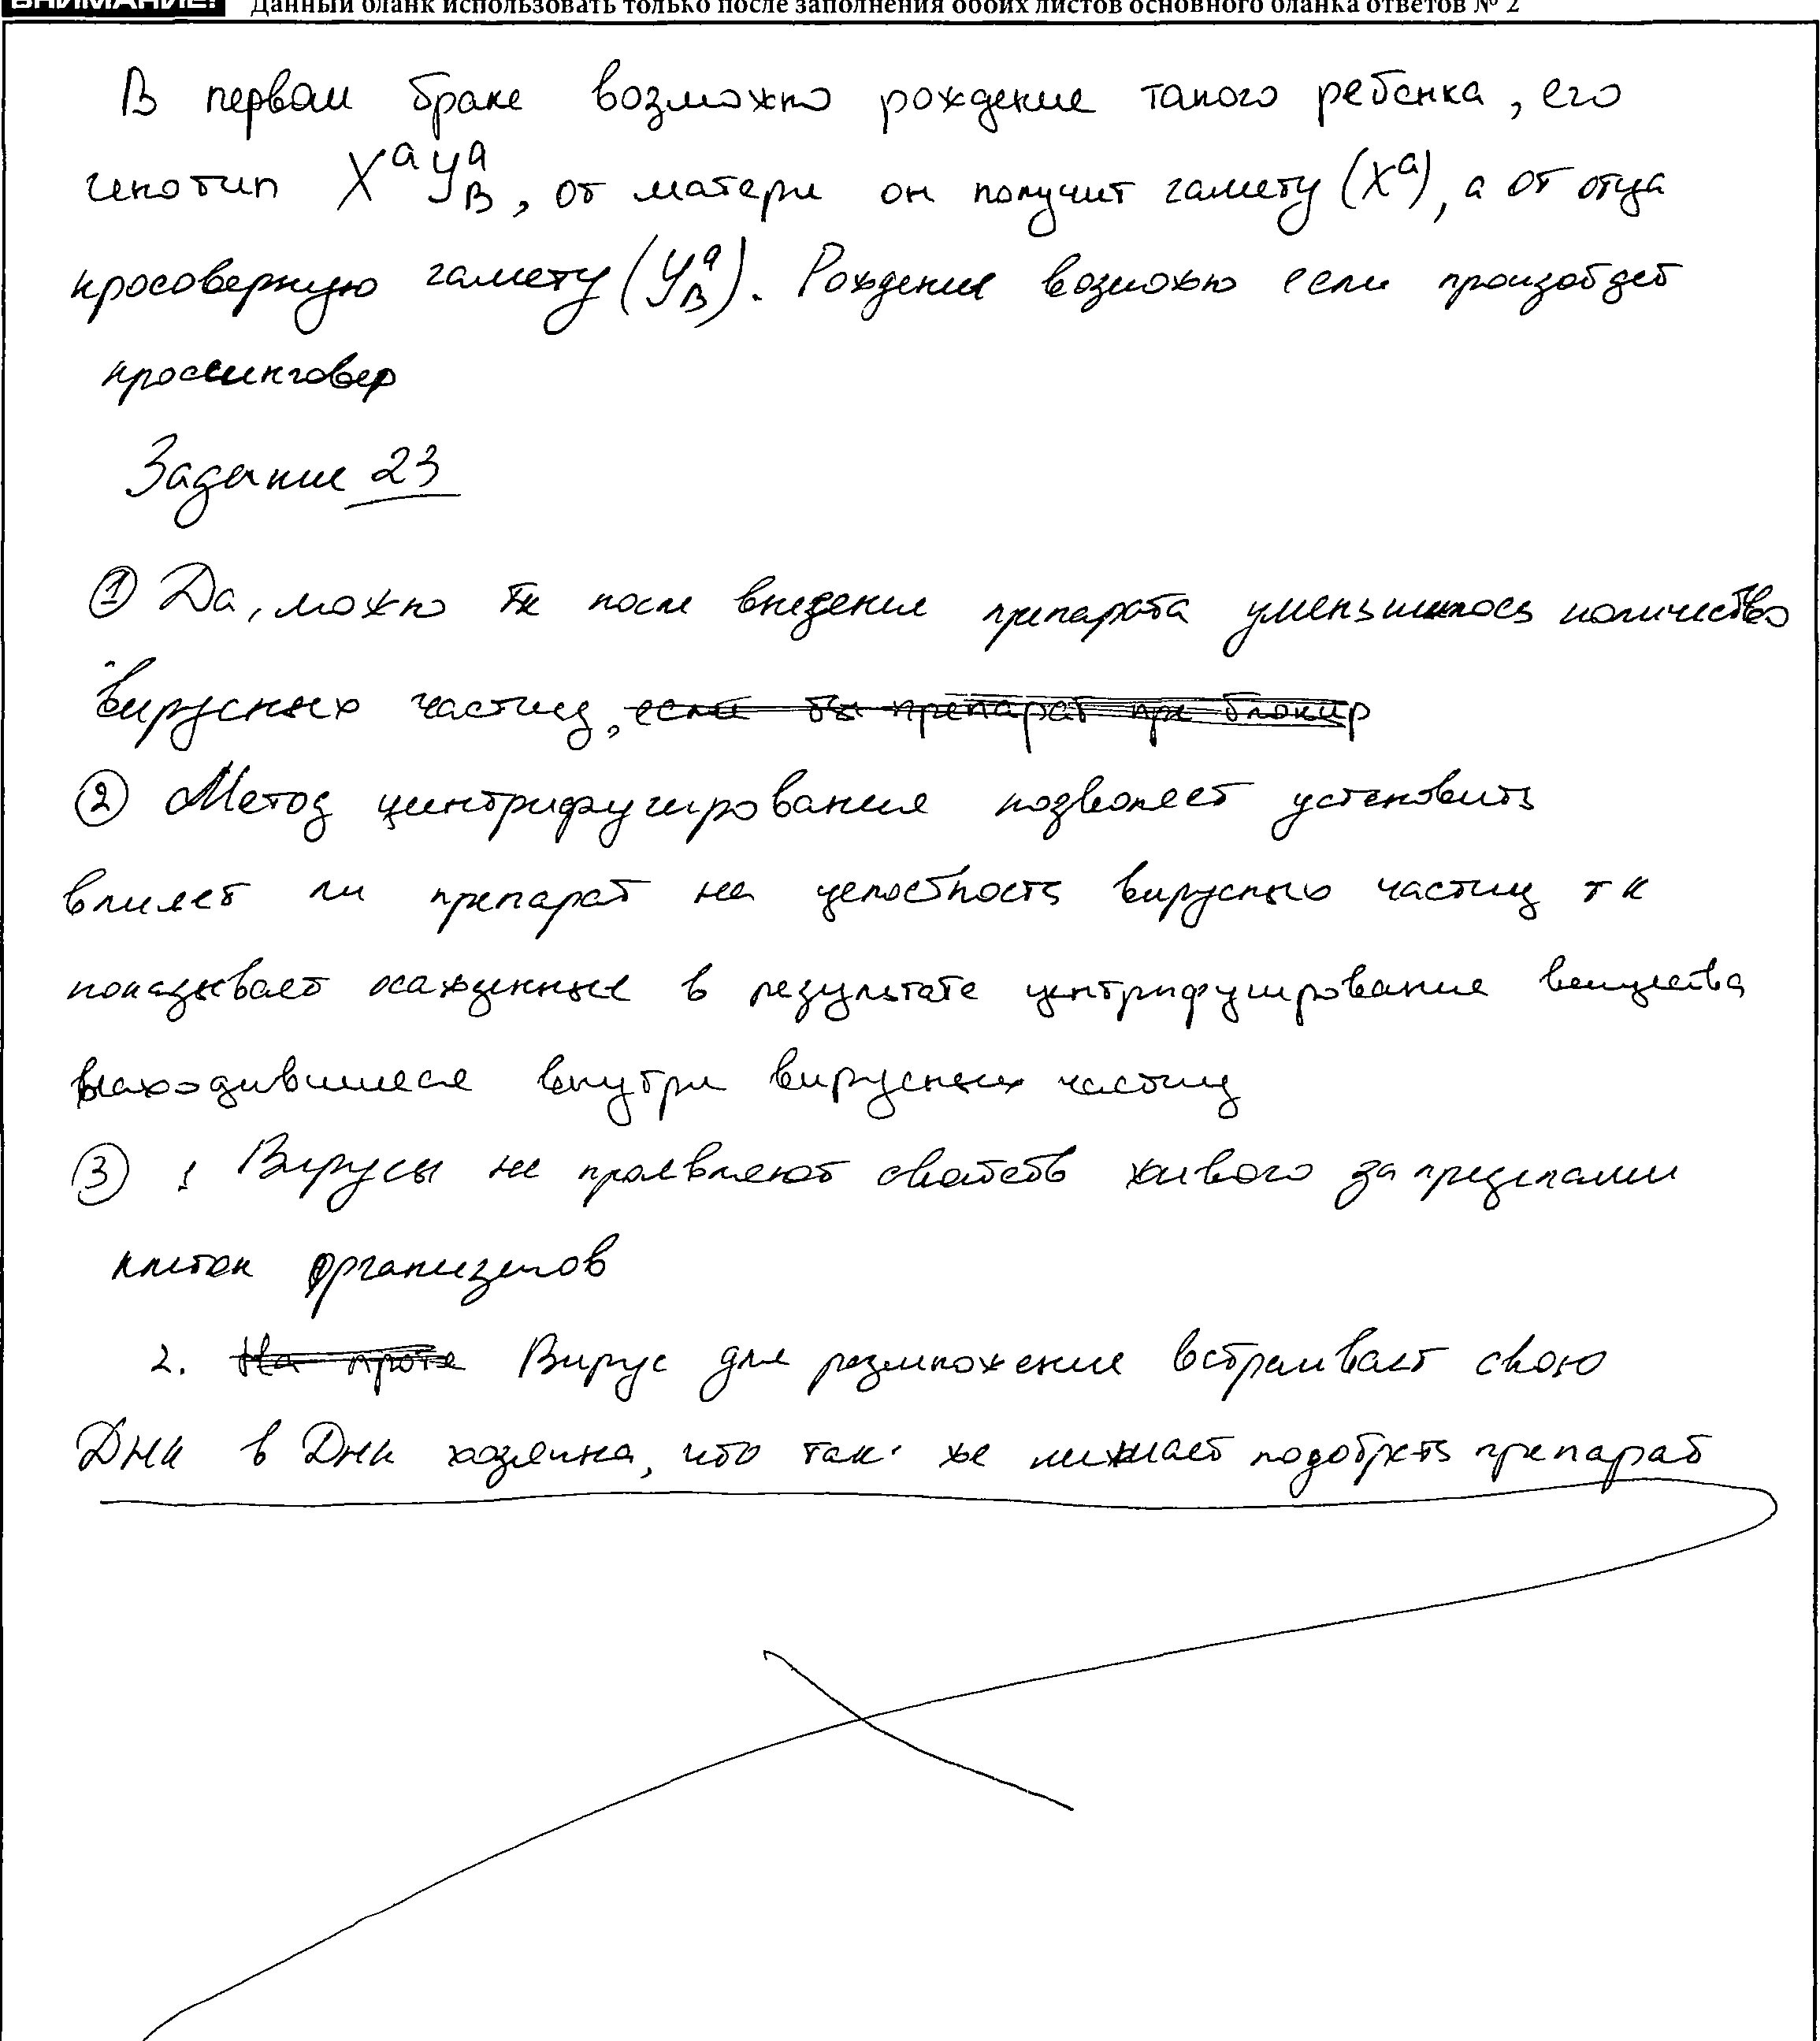 ВНИМАНИЕ! Данный бланк использовать только после заполнения обоих листов основного бланка ответов № 2
В первом браке возможно рождение такого ребенка, его
генотип XᵃYᵃ_B, от матери он получит гамету (Xᵃ), а от отца
кросоверную гамету (Yᵃ_B). Рождение возможно если произойдет
кроссинговер
Задание 23
① Да, можно тк после введения препарата уменьшилось количество
вирусных частиц, если бы препарат пре блокир
② Метод центрифугирования позволяет установить
влияет ли препарат на целостность вирусных частиц т к
показывает осажденные в результате центрифугирование вещества
находившиеся внутри вирусных частиц
③ 1 Вирусы не проявляют свойств живого за пределами
клеток организмов
2. На проте Вирус для размножение встраивает свою
ДНК в ДНК хозяина, что так же мешает подобрать препарат